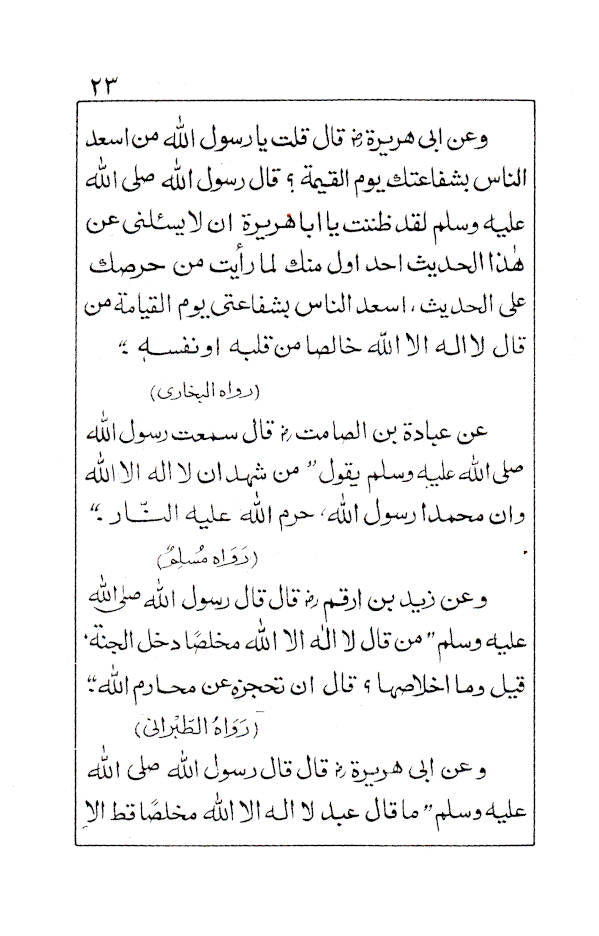 ٢٣
وعن ابى هريرةؓ قال قلت يا رسول الله من اسعد
الناس بشفاعتك يوم القيمة ؟ قال رسول الله صلى الله
عليه وسلم لقد ظننت يا ابا هريرة ان لا يسئلنى عن
هٰذا الحديث احد اول منك لما رأيت من حرصك
على الحديث، اسعد الناس بشفاعتى يوم القيامة من
قال لا اله الا الله خالصا من قلبه او نفسه ."
(رواه البخارى)
عن عبادة بن الصامتؓ قال سمعت رسول الله
صلى الله عليه وسلم يقول" من شهد ان لا اله الا الله
وان محمدا رسول الله، حرم الله عليه النّار ."
(رَوَاه مُسْلِمٌ)
وعن زيد بن ارقمؓ قال قال رسول الله صلى الله
عليه وسلم" من قال لا الٰه الا الله مخلصًا دخل الجنة.
قيل وما اخلاصها ؟ قال ان تحجزه عن محارم الله."
(رَوَاهُ الطَّبْرانى)
وعن ابى هريرةؓ قال قال رسول الله صلى الله
عليه وسلم" ما قال عبد لا اله الا الله مخلصًا قط الا